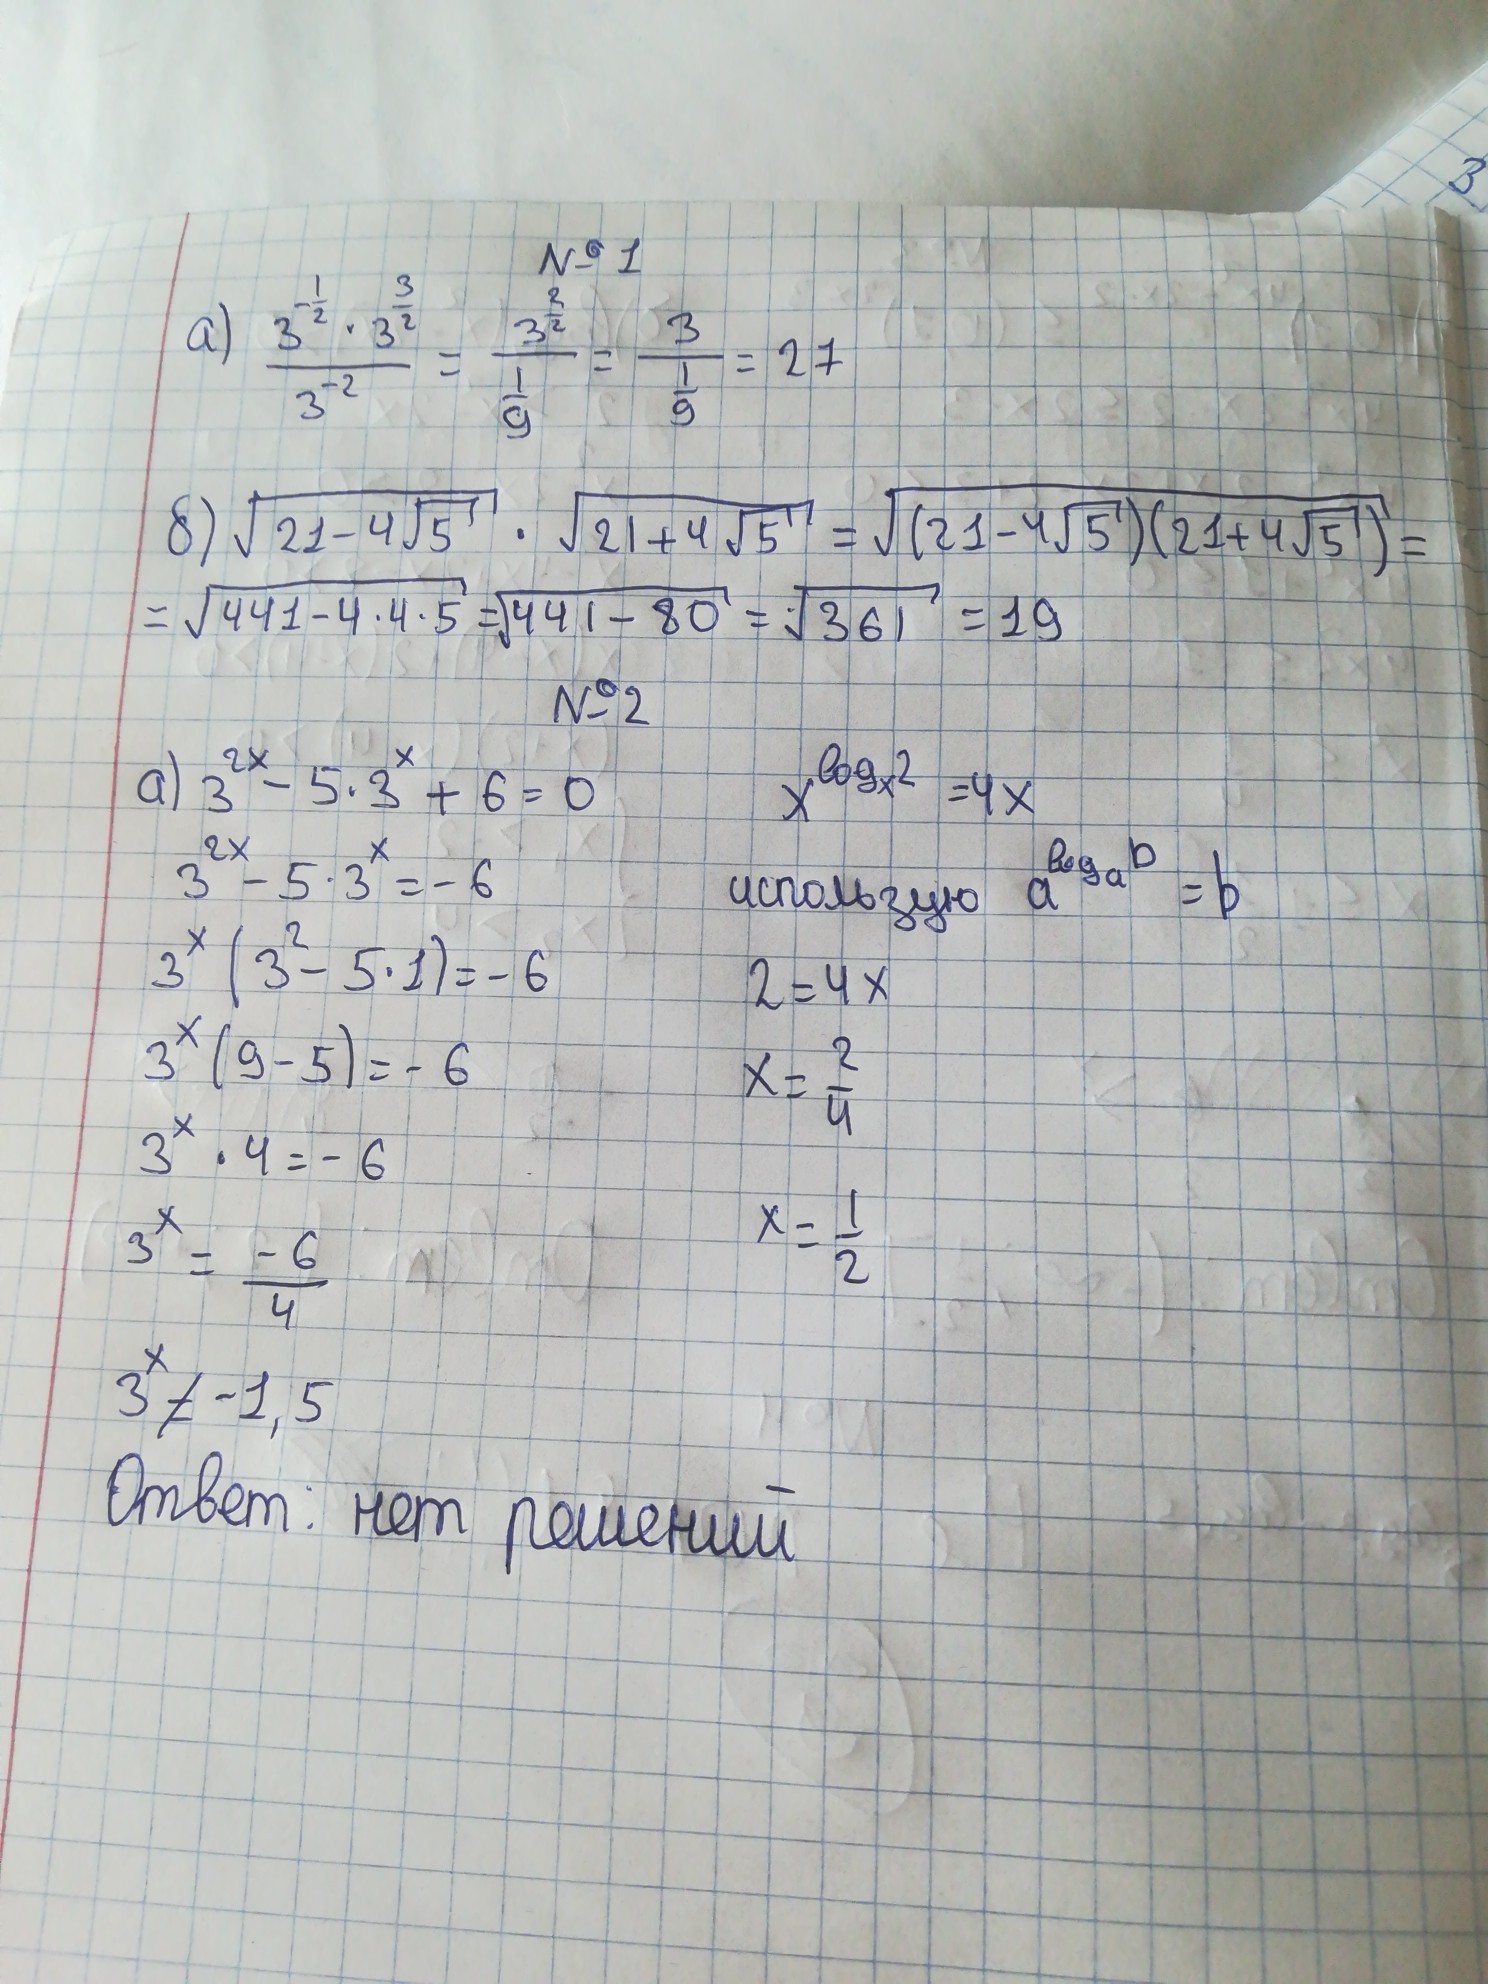 № 1
а) (3^(-1/2) · 3^(3/2)) / 3^(-2) = 3^(2/2) / (1/9) = 3 / (1/9) = 27
б) √(21-4√5) · √(21+4√5) = √((21-4√5)(21+4√5)) =
= √(441-4·4·5) = √(441-80) = √361 = 19
№ 2
а) 3^(2x) - 5·3^x + 6 = 0
3^(2x) - 5·3^x = -6
3^x (3^2 - 5·1) = -6
3^x (9-5) = -6
3^x · 4 = -6
3^x = -6/4
3^x ≠ -1,5
Ответ: нет решений
x^(log_x 2) = 4x
использую a^(log_a b) = b
2 = 4x
x = 2/4
x = 1/2